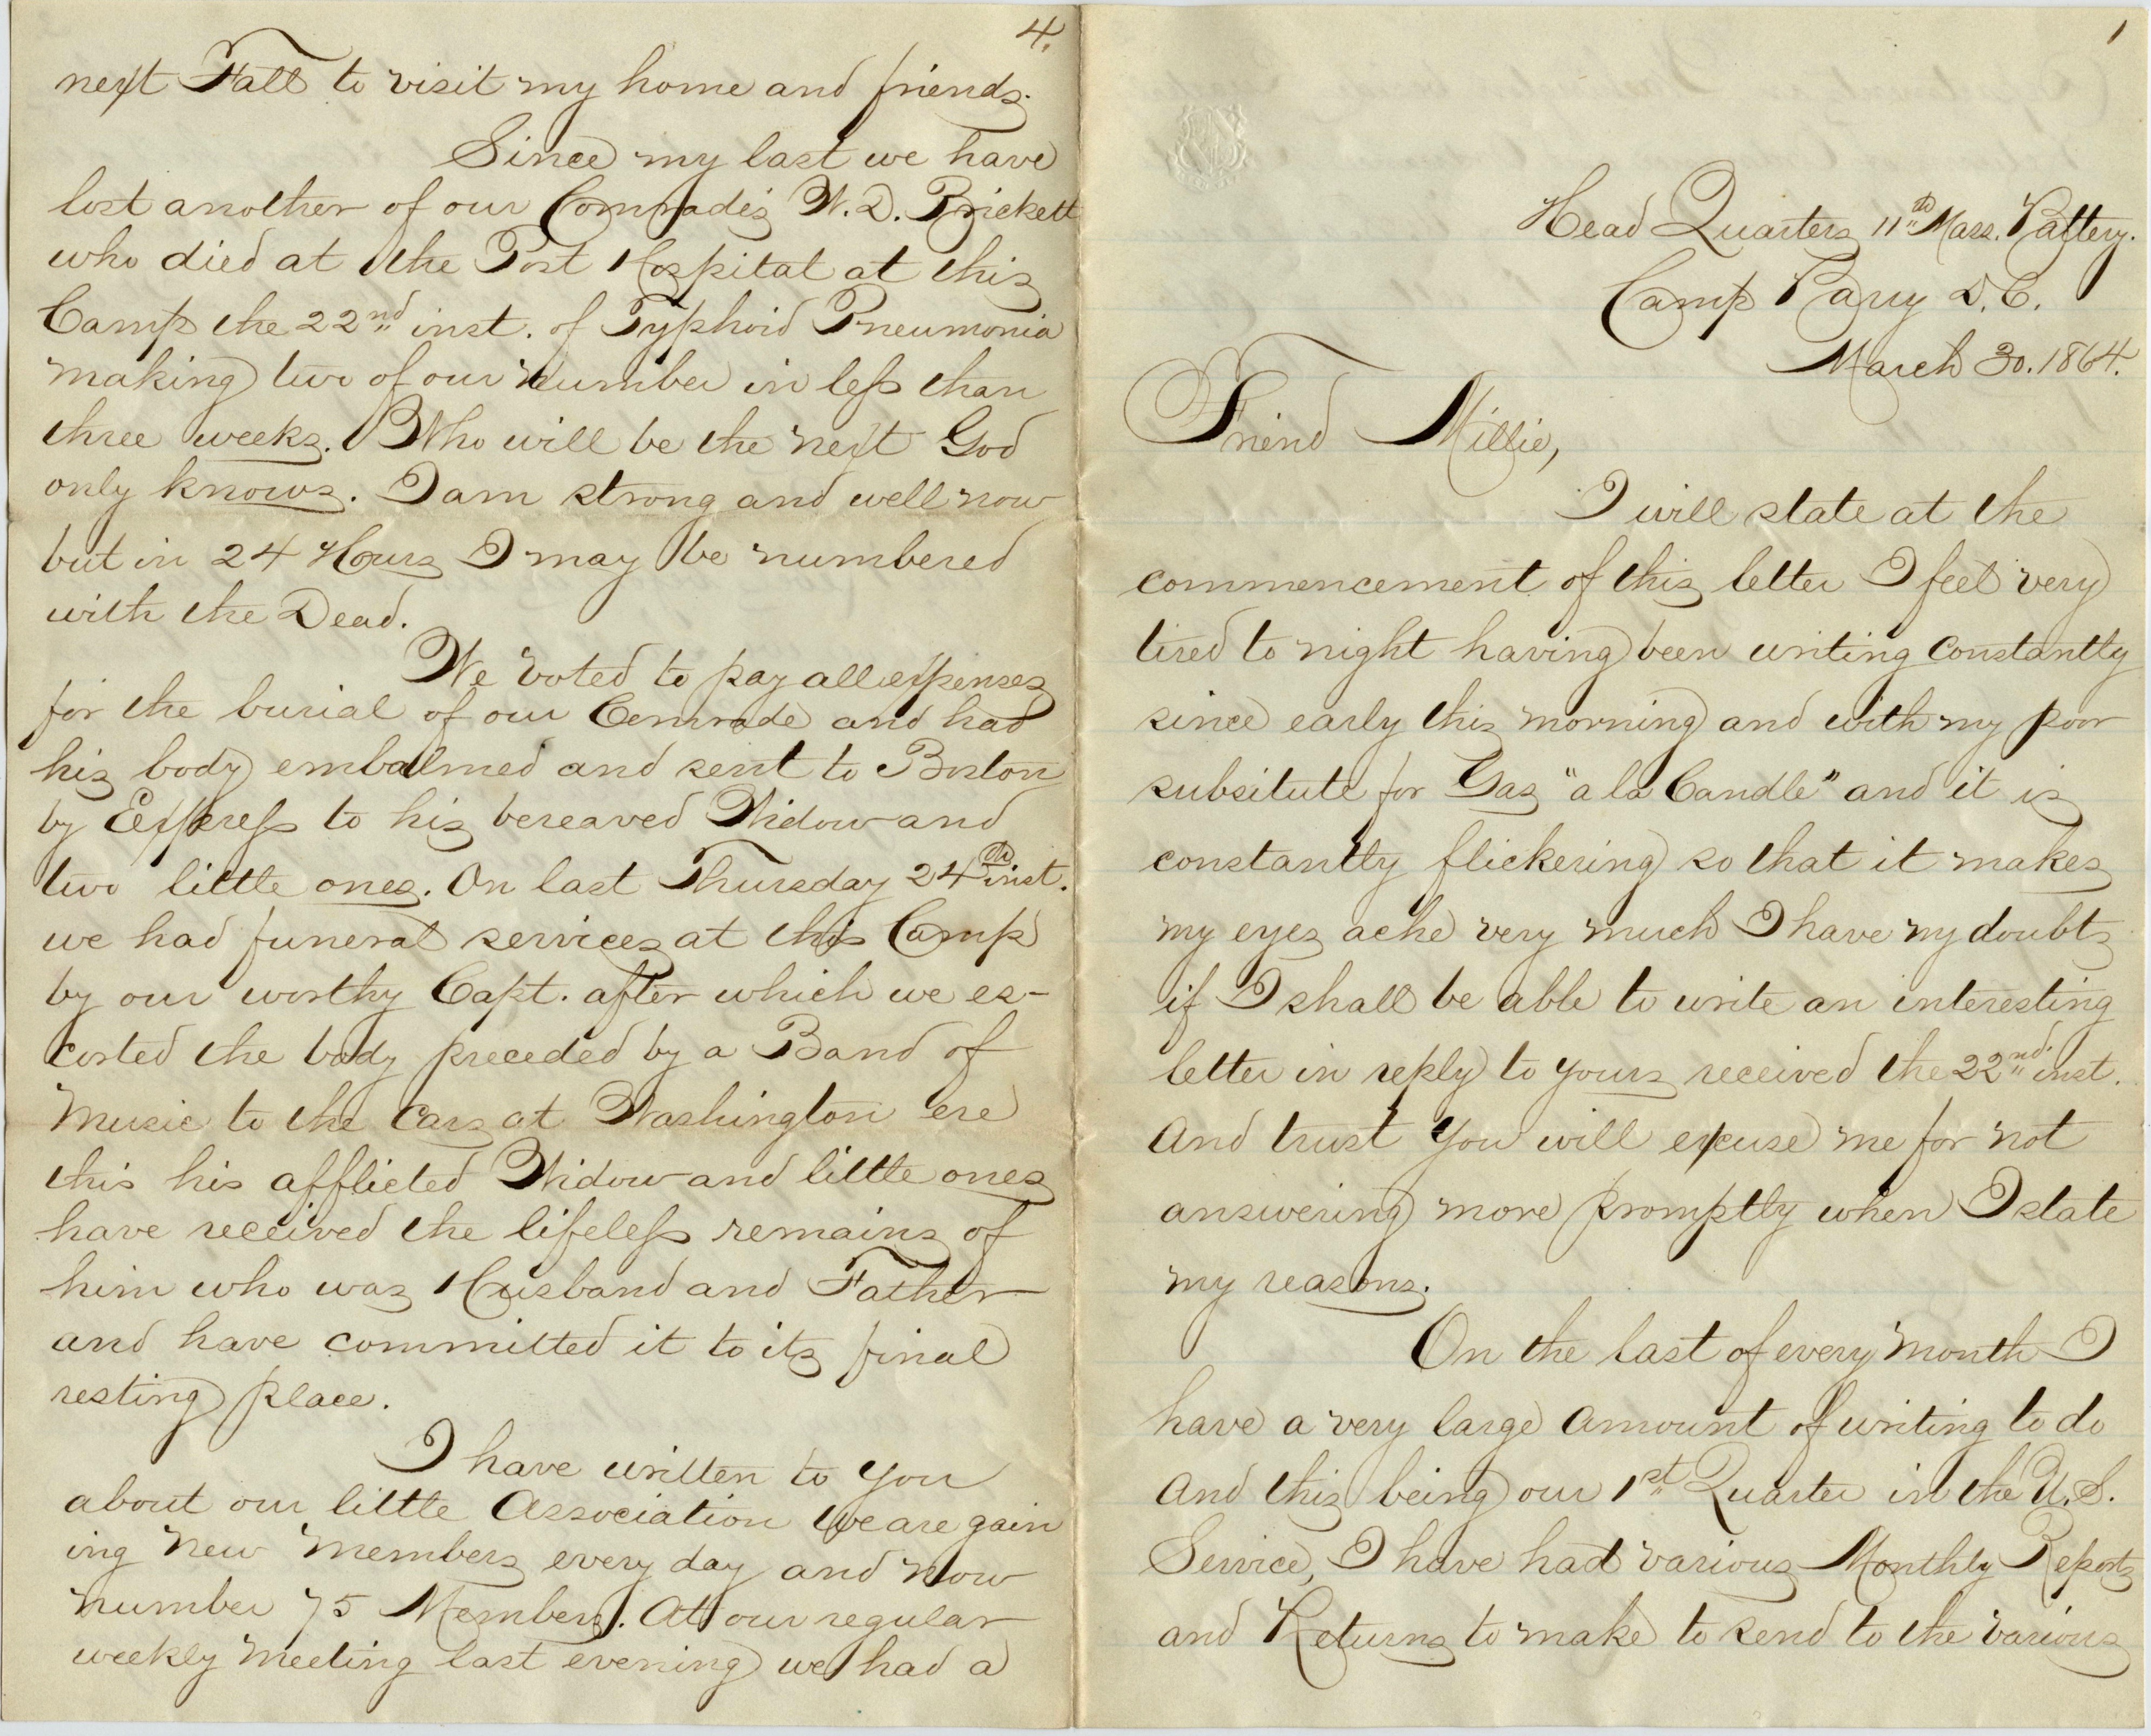 4.
next Fall to visit my home and friends.
Since my last we have
lost another of our Comrades W. D. Brickett
who died at the Post Hospital at this
Camp the 22nd inst. of Typhoid Pneumonia
making two of our number in less than
three weeks. Who will be the next God
only knows. I am strong and well now
but in 24 Hours I may be numbered
with the Dead.
We voted to pay all expenses
for the burial of our Comrade and had
his body embalmed and sent to Boston
by Express to his bereaved Widow and
two little ones. On last Thursday 24th inst.
we had funeral services at this Camp
by our worthy Capt. after which we es-
corted the body preceded by a Band of
Music to the Cars at Washington ere
this his afflicted Widow and little ones
have received the lifeless remains of
him who was Husband and Father
and have committed it to its final
resting place.
I have written to you
about our little Association we are gain
ing new members every day and now
number 75 Members. At our regular
weekly meeting last evening we had a
1
Head Quarters 11th Mass. Battery.
Camp Barry D.C.
March 30. 1864.
Friend Millie,
I will state at the
commencement of this letter I feel very
tired to night having been writing constantly
since early this morning and with my poor
subsitute for Gas "a la Candle" and it is
constantly flickering so that it makes
my eyes ache very much I have my doubts
if I shall be able to write an interesting
letter in reply to yours received the 22nd inst.
And trust you will excuse me for not
answering more promptly when I state
my reasons.
On the last of every month I
have a very large amount of writing to do
and this being our 1st Quarter in the U.S.
Service, I have had various Monthly Reports
and Returns to make to send to the various